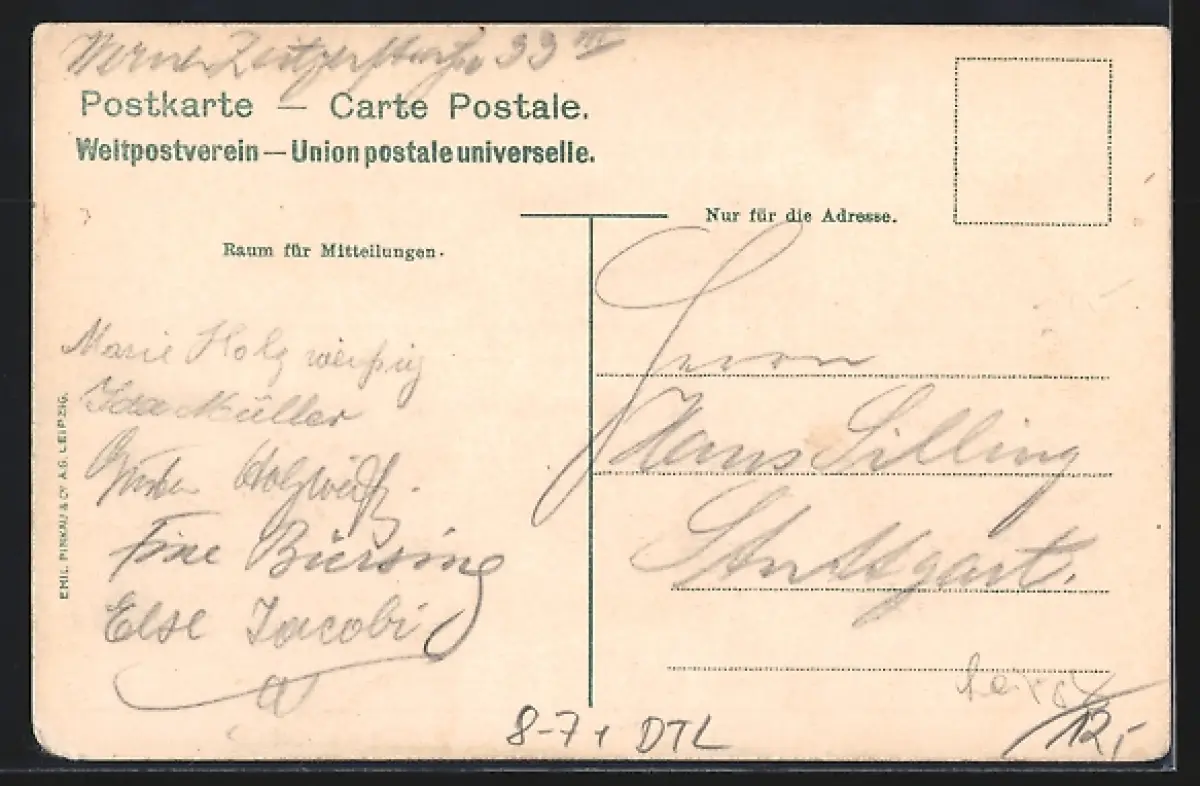 33 III
Postkarte — Carte Postale.
Weltpostverein — Union postale universelle.
Nur für die Adresse.
Raum für Mitteilungen.
Herrn
Hans Silling
Stuttgart.
Marie Holzweißig
Ida Müller
Holzweißig.
Fine Büersing
Else Jacobi
EMIL PINKAU & Cº A.G. LEIPZIG.
8-7 + DTL
12,-